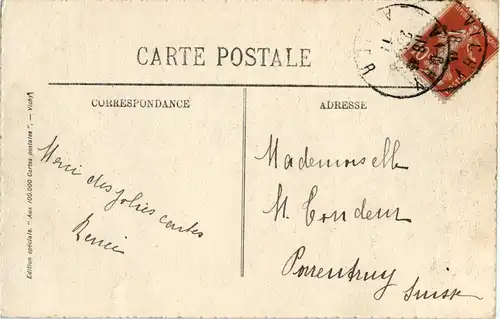 CARTE POSTALE
CORRESPONDANCE
ADRESSE
Merci des jolies cartes
Renée
Mademoiselle
M. Condeur
Porrentruy
Suisse
Edition spéciale. "Aux 100.000 Cartes postales". — Vichy
VICHY